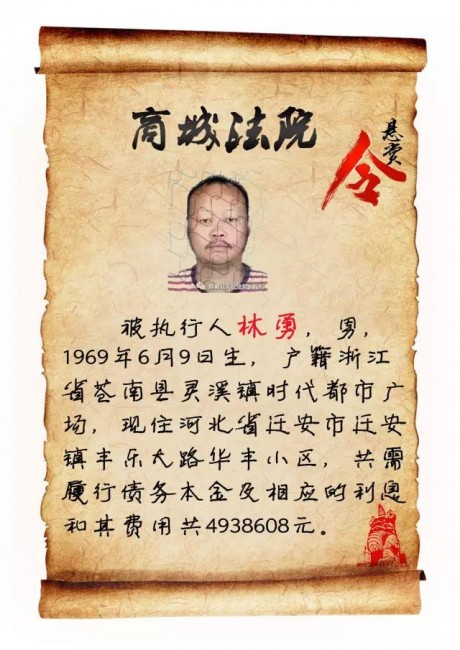 商城法院
悬赏
令
被执行人林勇，男，
1969年6月9日生，户籍浙江
省苍南县灵溪镇时代都市广
场，现住河北省迁安市迁安
镇丰乐大路华丰小区，共需
履行债务本金及相应的利息
和其费用共4938608元。